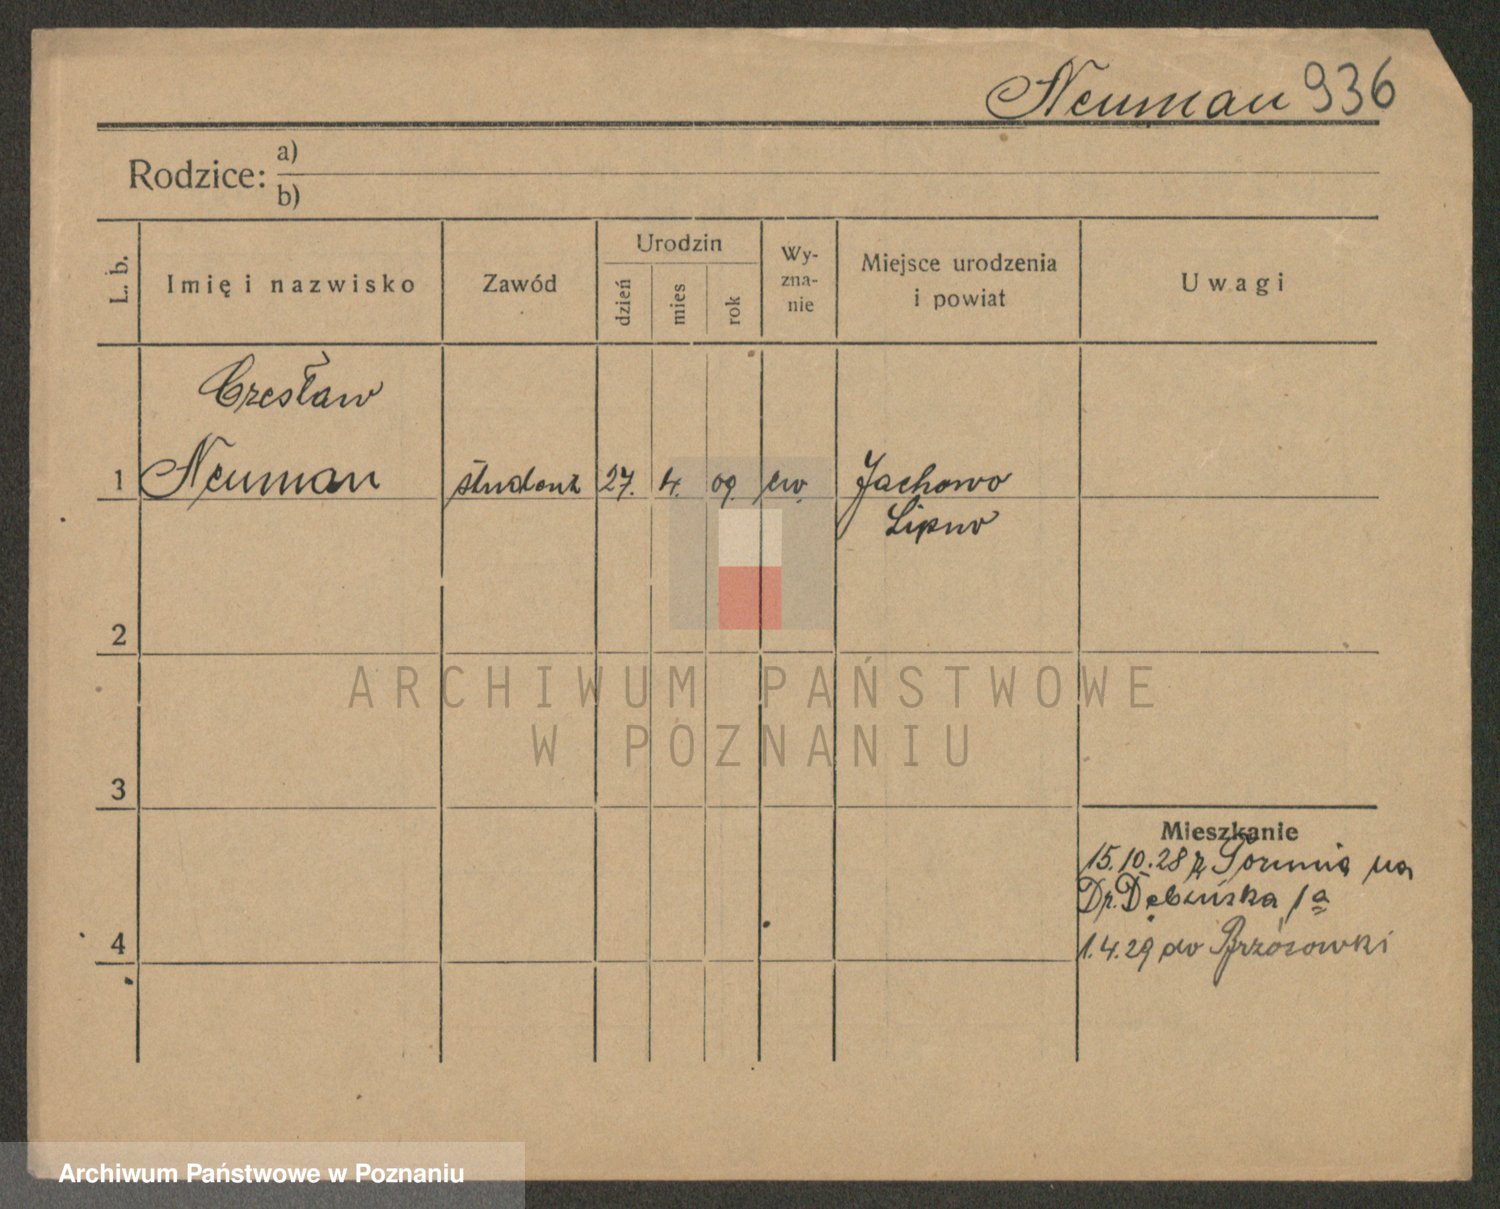 Neuman 936
Rodzice: a)
b)
L. b.
Imię i nazwisko
Zawód
Urodzin
dzień
mies
rok
Wy-
zna-
nie
Miejsce urodzenia
i powiat
Uwagi
Czesław
1 Neuman student 27. 4. 09. ew. Jachowo
Lipno
2
ARCHIWUM PAŃSTWOWE
W POZNANIU
3
Mieszkanie
15.10.28 z Torunia na
Dr. Dębińska 1a
4
1.4.29 do Brzozowki
Archiwum Państwowe w Poznaniu